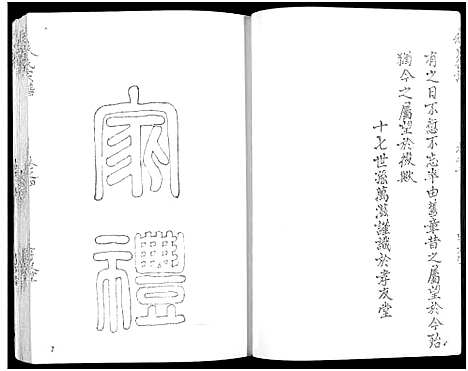 有之曰不愆不忘率由舊章昔之屬望於今殆
猶今之屬望於後歟
十七世孫萬滋謹識於孝友堂
家禮